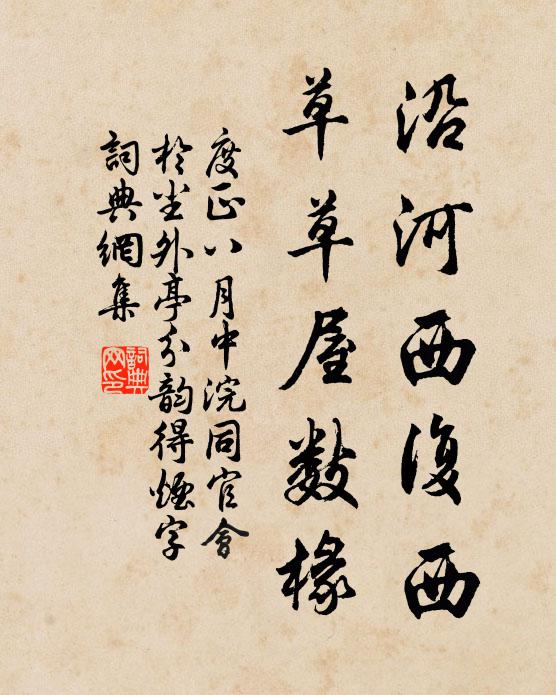 沿河西復西
草草屋數椽
度正八月中浣同官會
於坐外亭分韵得煙字
詞典網集
詞典網印